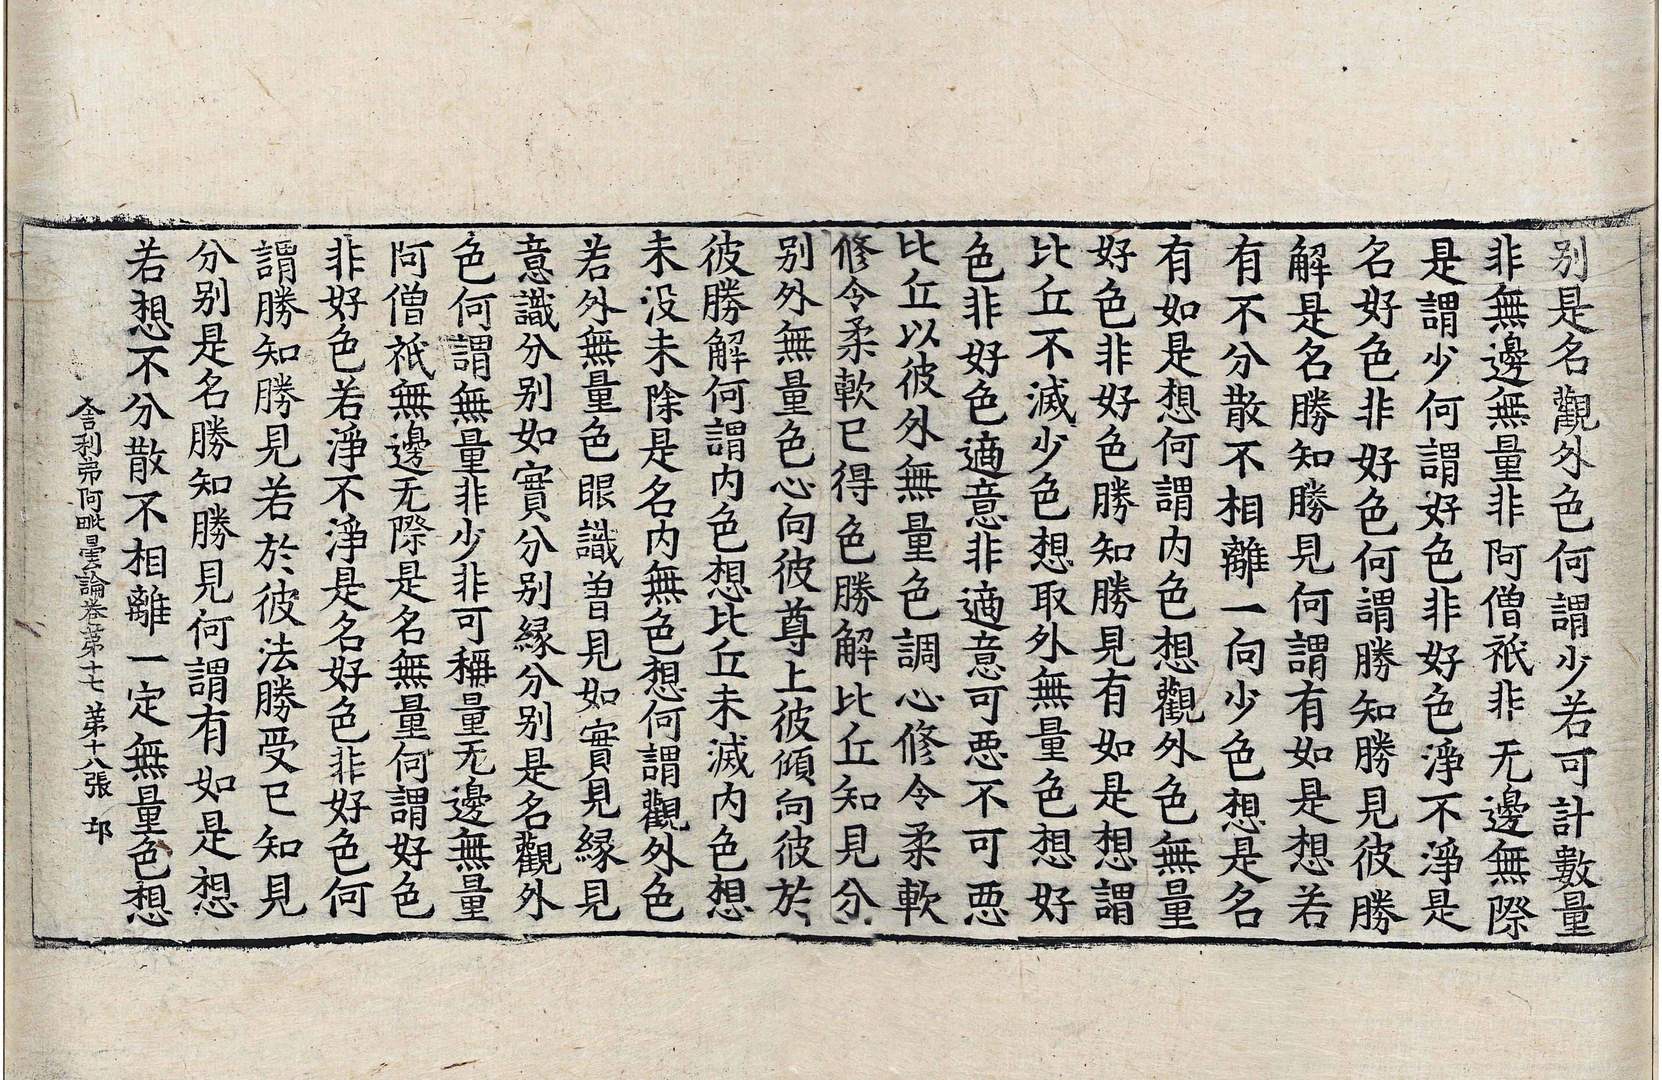 别是名觀外色何謂少若可計數量
非無邊無量非阿僧祇非无邊無際
是謂少何謂好色非好色淨不淨是
名好色非好色何謂勝知勝見彼勝
解是名勝知勝見何謂有如是想若
有不分散不相離一向少色想是名
有如是想何謂内色想觀外色無量
好色非好色勝知勝見有如是想謂
比丘不滅少色想取外無量色想好
色非好色適意非適意可惡不可惡
比丘以彼外無量色調心修令柔軟
修令柔軟已得色勝解比丘知見分
别外無量色心向彼尊上彼傾向彼於
彼勝解何謂内色想比丘未滅内色想
未没未除是名内無色想何謂觀外色
若外無量色眼識曽見如實見縁見
意識分别如實分别縁分别是名觀外
色何謂無量非少非可稱量无邊無量
阿僧祇無邊无際是名無量何謂好色
非好色若淨不淨是名好色非好色何
謂勝知勝見若於彼法勝受已知見
分别是名勝知勝見何謂有如是想
若想不分散不相離一定無量色想
舎利弗阿毗曇論卷第十七 第十八張 邙